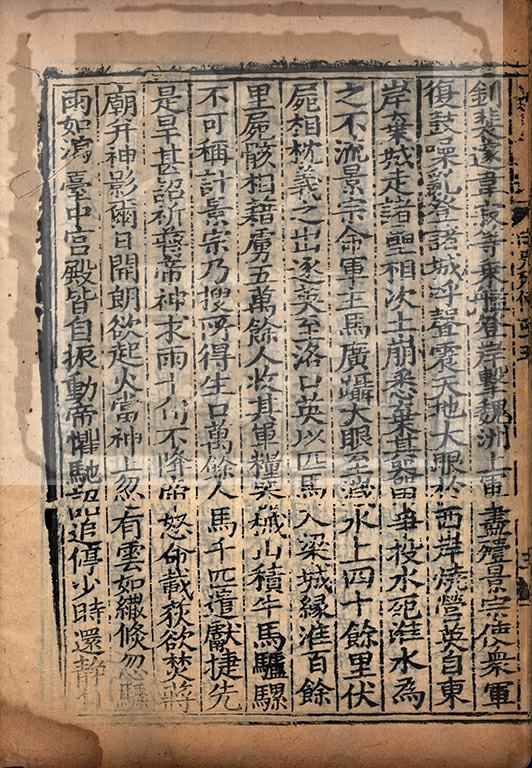 釗裴邃韋寂等乘艦登岸擊魏洲上軍盡殪景宗使衆軍
復鼓噪亂登諸城呼聲震天地大眼於西岸燒營英自東
岸棄城走諸壘相次土崩悉棄其器甲爭投水死淮水為
之不流景宗命軍主馬廣躡大眼至濊水上四十餘里伏
屍相枕義之出逐英至洛口英以匹馬入梁城緣淮百餘
里屍骸相藉虜五萬餘人收其軍糧器械山積牛馬驢騾
不可稱計景宗乃搜所得生口萬餘人馬千匹遣獻捷先
是旱甚詔祈蔣帝神求雨十旬不降帝怒命載荻欲焚蔣
廟并神影爾日開朗欲起火當神上忽有雲如繖倏忽驟
雨如瀉臺中宮殿皆自振動帝懼馳詔追停少時還静